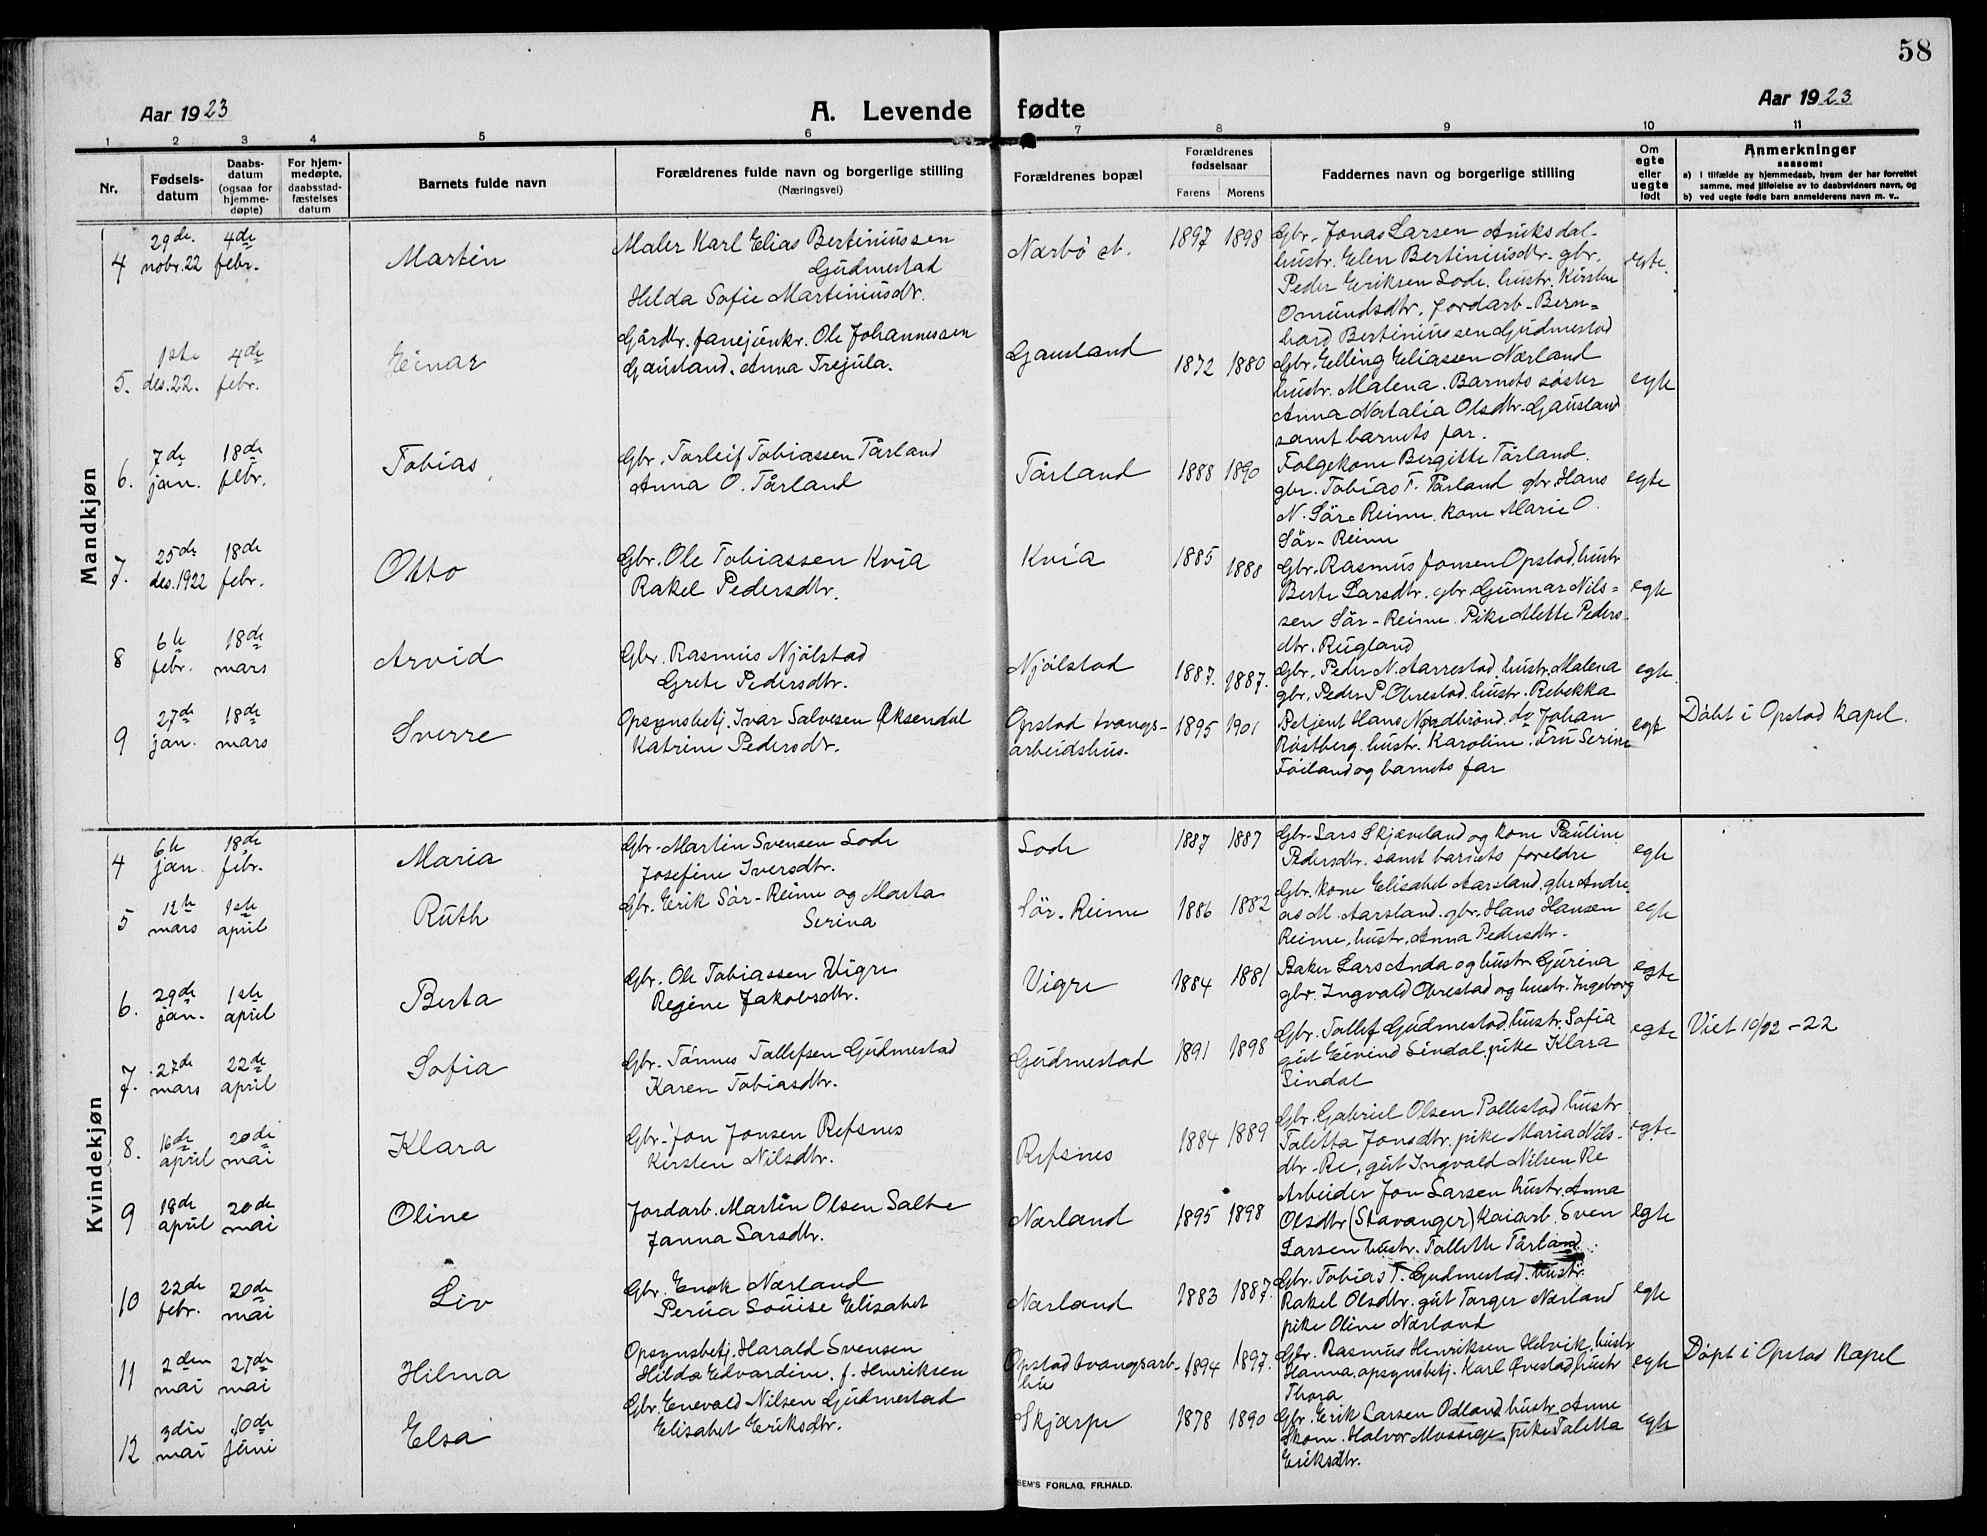 58
Aar 1923
A. Levende fødte
Aar 1923
1 2 3 4 5 6 7 8 9 10 11
Nr.
Fødsels-
datum
Daabs-
datum
(ogsaa for
hjemme-
døpte)
For hjem-
medøpte,
daabsstad-
fæstelses
datum
Barnets fulde navn
Forældrenes fulde navn og borgerlige stilling
(Næringsvei)
Forældrenes bopæl
Forældrenes
fødselsaar
Farens Morens
Faddernes navn og borgerlige stilling
Om
egte
eller
uegte
født
Anmerkninger
saasom:
a) I tilfælde av hjemmedaab, hvem der har forrettet
samme, med tilføielse av to daabsvidners navn, og
b) ved uegte fødte barn anmelderens navn m. v..
Mandkjøn
4 29de nobr. 22 4de febr. Martin
Maler Karl Elias Bertiniussen
Gudmestad
Helda Sofie Martiniusdtr.
Nærbö st. 1897 1898
Gbr. Jonas Larsen Auksdal.
hustr. Elen Bertiniusdtr. gbr.
Peder Eriksen Lode. hustr. Kirsten
Omundsdtr. Jordarb. Bern=
hard Bertiniussen Gudmestad
egte.
5. 1ste des. 22. 4de febr. Einar
Gårdbr. Ole Johannessen
Gausland. Anna Trejula.
Gausland 1872 1880
Gbr. Elling Eliassen Nærland
hustr. Malena. Barnets søster
Anna Natalia Olsdtr. Gausland
samt barnets far.
egte
6. 7de jan. 18de febr. Tobias
Gbr. Torleif Tobiassen Tårland
Anna O. Tårland
Tårland 1888 1890
Folgekone Bergitte Tårland.
gbr. Tobias T. Tårland gbr. Hans
N. Sör-Reime. kone Marie O.
Sör-Reime
egte
7. 25de des. 1922 18de febr. Otto
Gbr. Ole Tobiassen Kvia
Rakel Pedersdtr.
Kvia 1885 1888
Gbr. Rasmus Jonsen Opstad, hustr
Berte Larsdtr. gbr Gunnar Nils=
sen Sör-Reime. Pike Alette Peders-
dtr. Rugland
egte
8 6te febr. 18de mars Arvid
Gbr. Rasmus Njölstad
Grete Pedersdtr.
Njölstad 1887. 1887.
Gbr. Peder N. Aarrestad. hustr. Malena
gbr. Peder P. Obrestad. hustr. Rebekka
egte.
9 27de jan. 18de mars Sverre
Opsynsbetj. Ivar Salvesen Øksendal
Katrine Pedersdtr.
Opstad tvangs-
arbeidshus. 1895 1901
Betjent Hans Nordbrönd. do Johan
Røstberg. hustr. Karoline. Fru Serine
Föiland og barnets far
egte
Döbt i Opstad Kapel.
Kvindekjøn
4 6te jan. 18de febr. Maria
Gbr. Martin Svensen Lode
Josefine Iversdtr.
Lode 1887 1887
Gbr. Lars Skjæveland og kone Pauline
Pedersdtr. samt barnets foreldre
egte
5 12te mars 1ste april Ruth
Gbr. Erik Sör-Reime og Marta
Serina
Sör-Reime 1886 1882
Gbr. kone Elisabet Aarsland. gbr Andre-
as M. Aarsland. gbr. Hans Hansen
Reime, hustr. Anna Pedersdtr.
egte
6. 29de jan. 1ste april Berta
Gbr. Ole Tobiassen Vigre
Regine Jakobsdtr.
Vigre 1884 1881
Baker Lars Anda og hustr. Gurina
gbr. Ingvald Obrestad og hustr. Ingeborg
egte
7. 27de mars 22de april Sofia
Gbr. Tönnes Tollefsen Gudmestad
Karen Tobiasdtr.
Gudmestad 1891 1898
Gbr. Tollef Gudmestad, hustr. Sofia
gut Eivind Sindal, pike Klara
Sindal
egte
Viet 10/12 - 22
8. 16de april 20de mai Klara
Gbr. Jon Jonsen Refsnes
Kirsten Nilsdtr.
Refsnes 1884 1889
Gbr. Gabriel Olsen Pollestad hustr
Taletta Jonsdtr. pike Maria Nils-
dtr. Re, gut Ingvald Nilsen Re
egte
9 18de april 20de mai Oline
Jordarb. Martin Olsen Salte
Janna Larsdtr.
Nærland 1895 1898
Arbeider Jon Larsen hustr. Anna
Olsdtr (Stavanger) Kaiarb. Sven
Larsen hustr. Tollette Tårland
egte
10 22de febr. 20de mai Liv
Gbr. Enok Nærland
Louise Elisabet
Nærland 1883 1887.
Gbr. Tobias T. Gudmestad. hustr.
Rakel Olsdtr. gut Torger Nærland
pike Oline Nærland
egte
11 2den mai 27de mai Hilma
Opsynsbetj. Harald Svensen
Hilda Edvardine. f. Henriksen
Opstad tvangsarb-
hus 1894 1897.
Gbr. Rasmus Henriksen Helvik, hustr
Hanna. opsynsbetj. Karl Ovestad, hustr
Thora
egte
Döpt i Opstad Kapel
12 3die mai 10de juni Elsa
Gbr. Enevald Nilsen Gudmestad
Elisabet Eriksdtr.
Skjærpe 1878 1890
Gbr. Erik Larsen Odland, hustr. Anne
Skom. Halvor Mossige, pike Taletta
Eriksdtr.
egte
SEM'S FORLAG, FR.HALD.